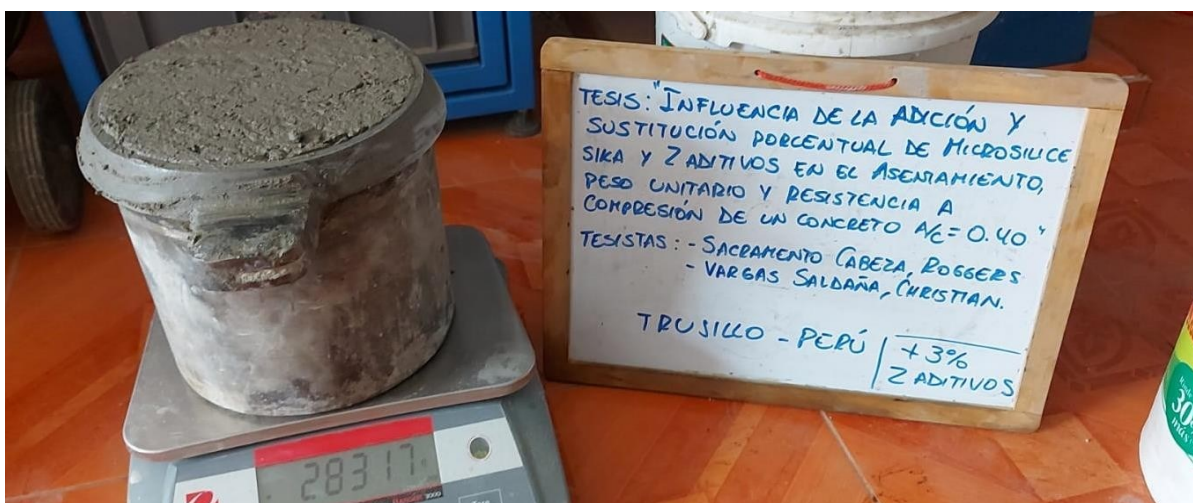 28317
TESIS: "INFLUENCIA DE LA ADICIÓN Y
SUSTITUCIÓN PORCENTUAL DE MICROSILICE
SIKA Y 2 ADITIVOS EN EL ASENTAMIENTO,
PESO UNITARIO Y RESISTENCIA A
COMPRESIÓN DE UN CONCRETO A/C = 0.40"
TESISTAS: - SACRAMENTO CABEZA, ROGGERS
- VARGAS SALDAÑA, CHRISTIAN.
TRUJILLO - PERÚ
+3%
2 ADITIVOS
30
más